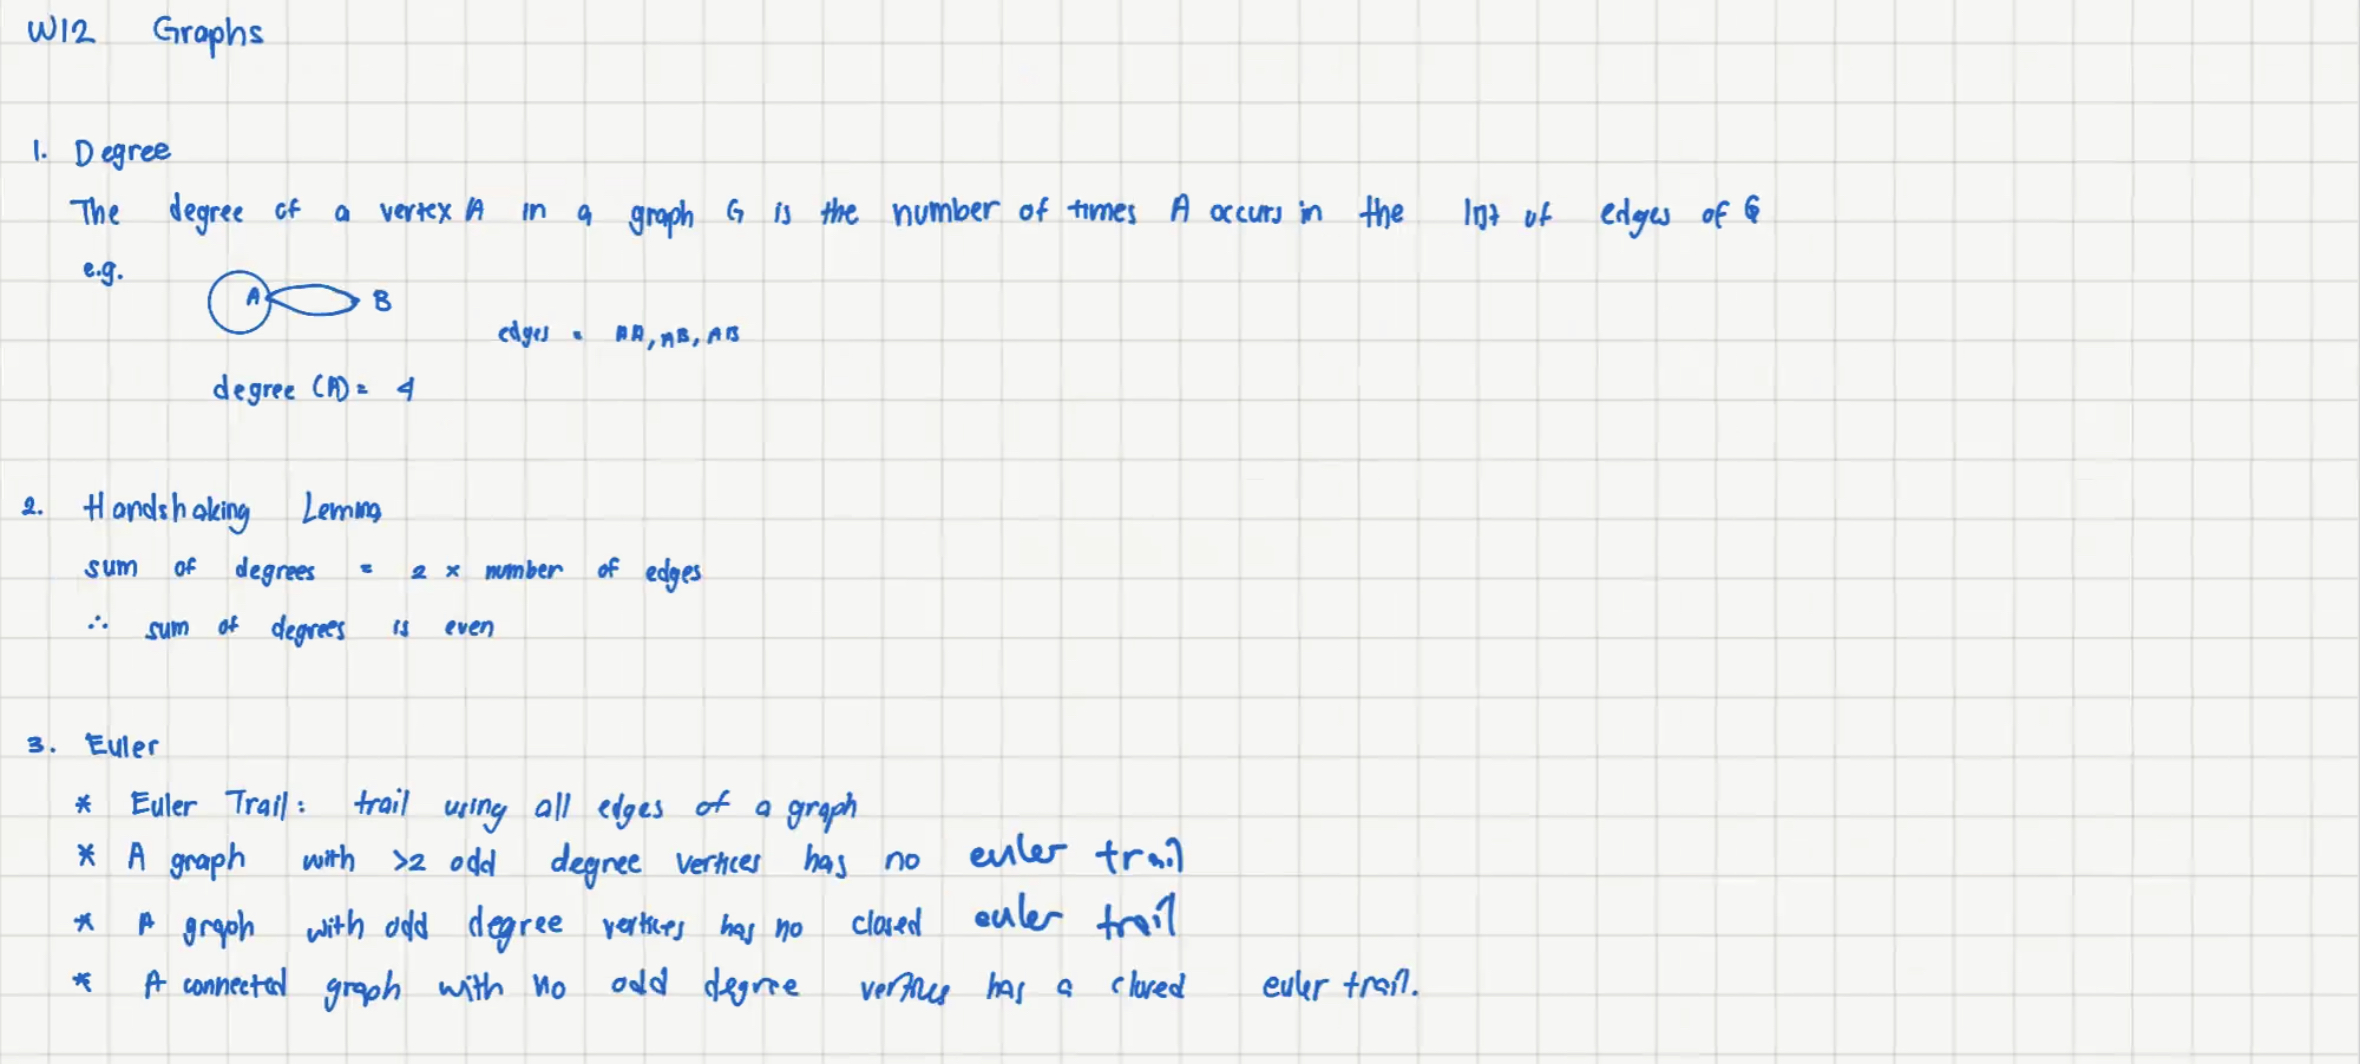 W12 Graphs
1. Degree
The degree of a vertex A in a graph G is the number of times A occurs in the list of edges of G
e.g.
A B
edges = AA, AB, AB
degree (A) = 4
2. Handshaking Lemma
sum of degrees = 2 × number of edges
∴ sum of degrees is even
3. Euler
* Euler Trail: trail using all edges of a graph
* A graph with >2 odd degree vertices has no euler trail
* A graph with odd degree vertices has no closed euler trail
* A connected graph with no odd degree vertices has a closed euler trail.